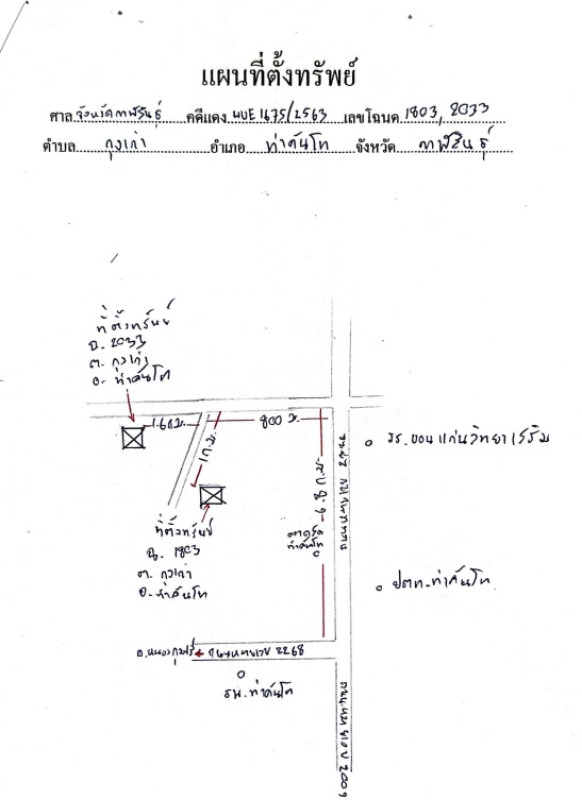 แผนที่ตั้งทรัพย์
ศาล จังหวัดกาฬสินธุ์ คดีแดง ผบE 1475/2563 เลขโฉนด 1803, 2033
ตำบล กุงเก่า อำเภอ ท่าคันโท จังหวัด กาฬสินธุ์
ที่ตั้งทรัพย์
ฉ. 2033
ต. กุงเก่า
อ. ท่าคันโท
800 ม.
1 ก.ม.
รร. ขอนแก่นวิทยาเสริม
6.8 ก.ม.
ที่ตั้งทรัพย์
ฉ. 1803
ต. กุงเก่า
อ. ท่าคันโท
ท่าคันโท
ปตท. ท่าคันโท
อ.หนองกุงศรี ถนนหมายเลข 2268
รพ. ท่าคันโท
ถนนหมายเลข 2009